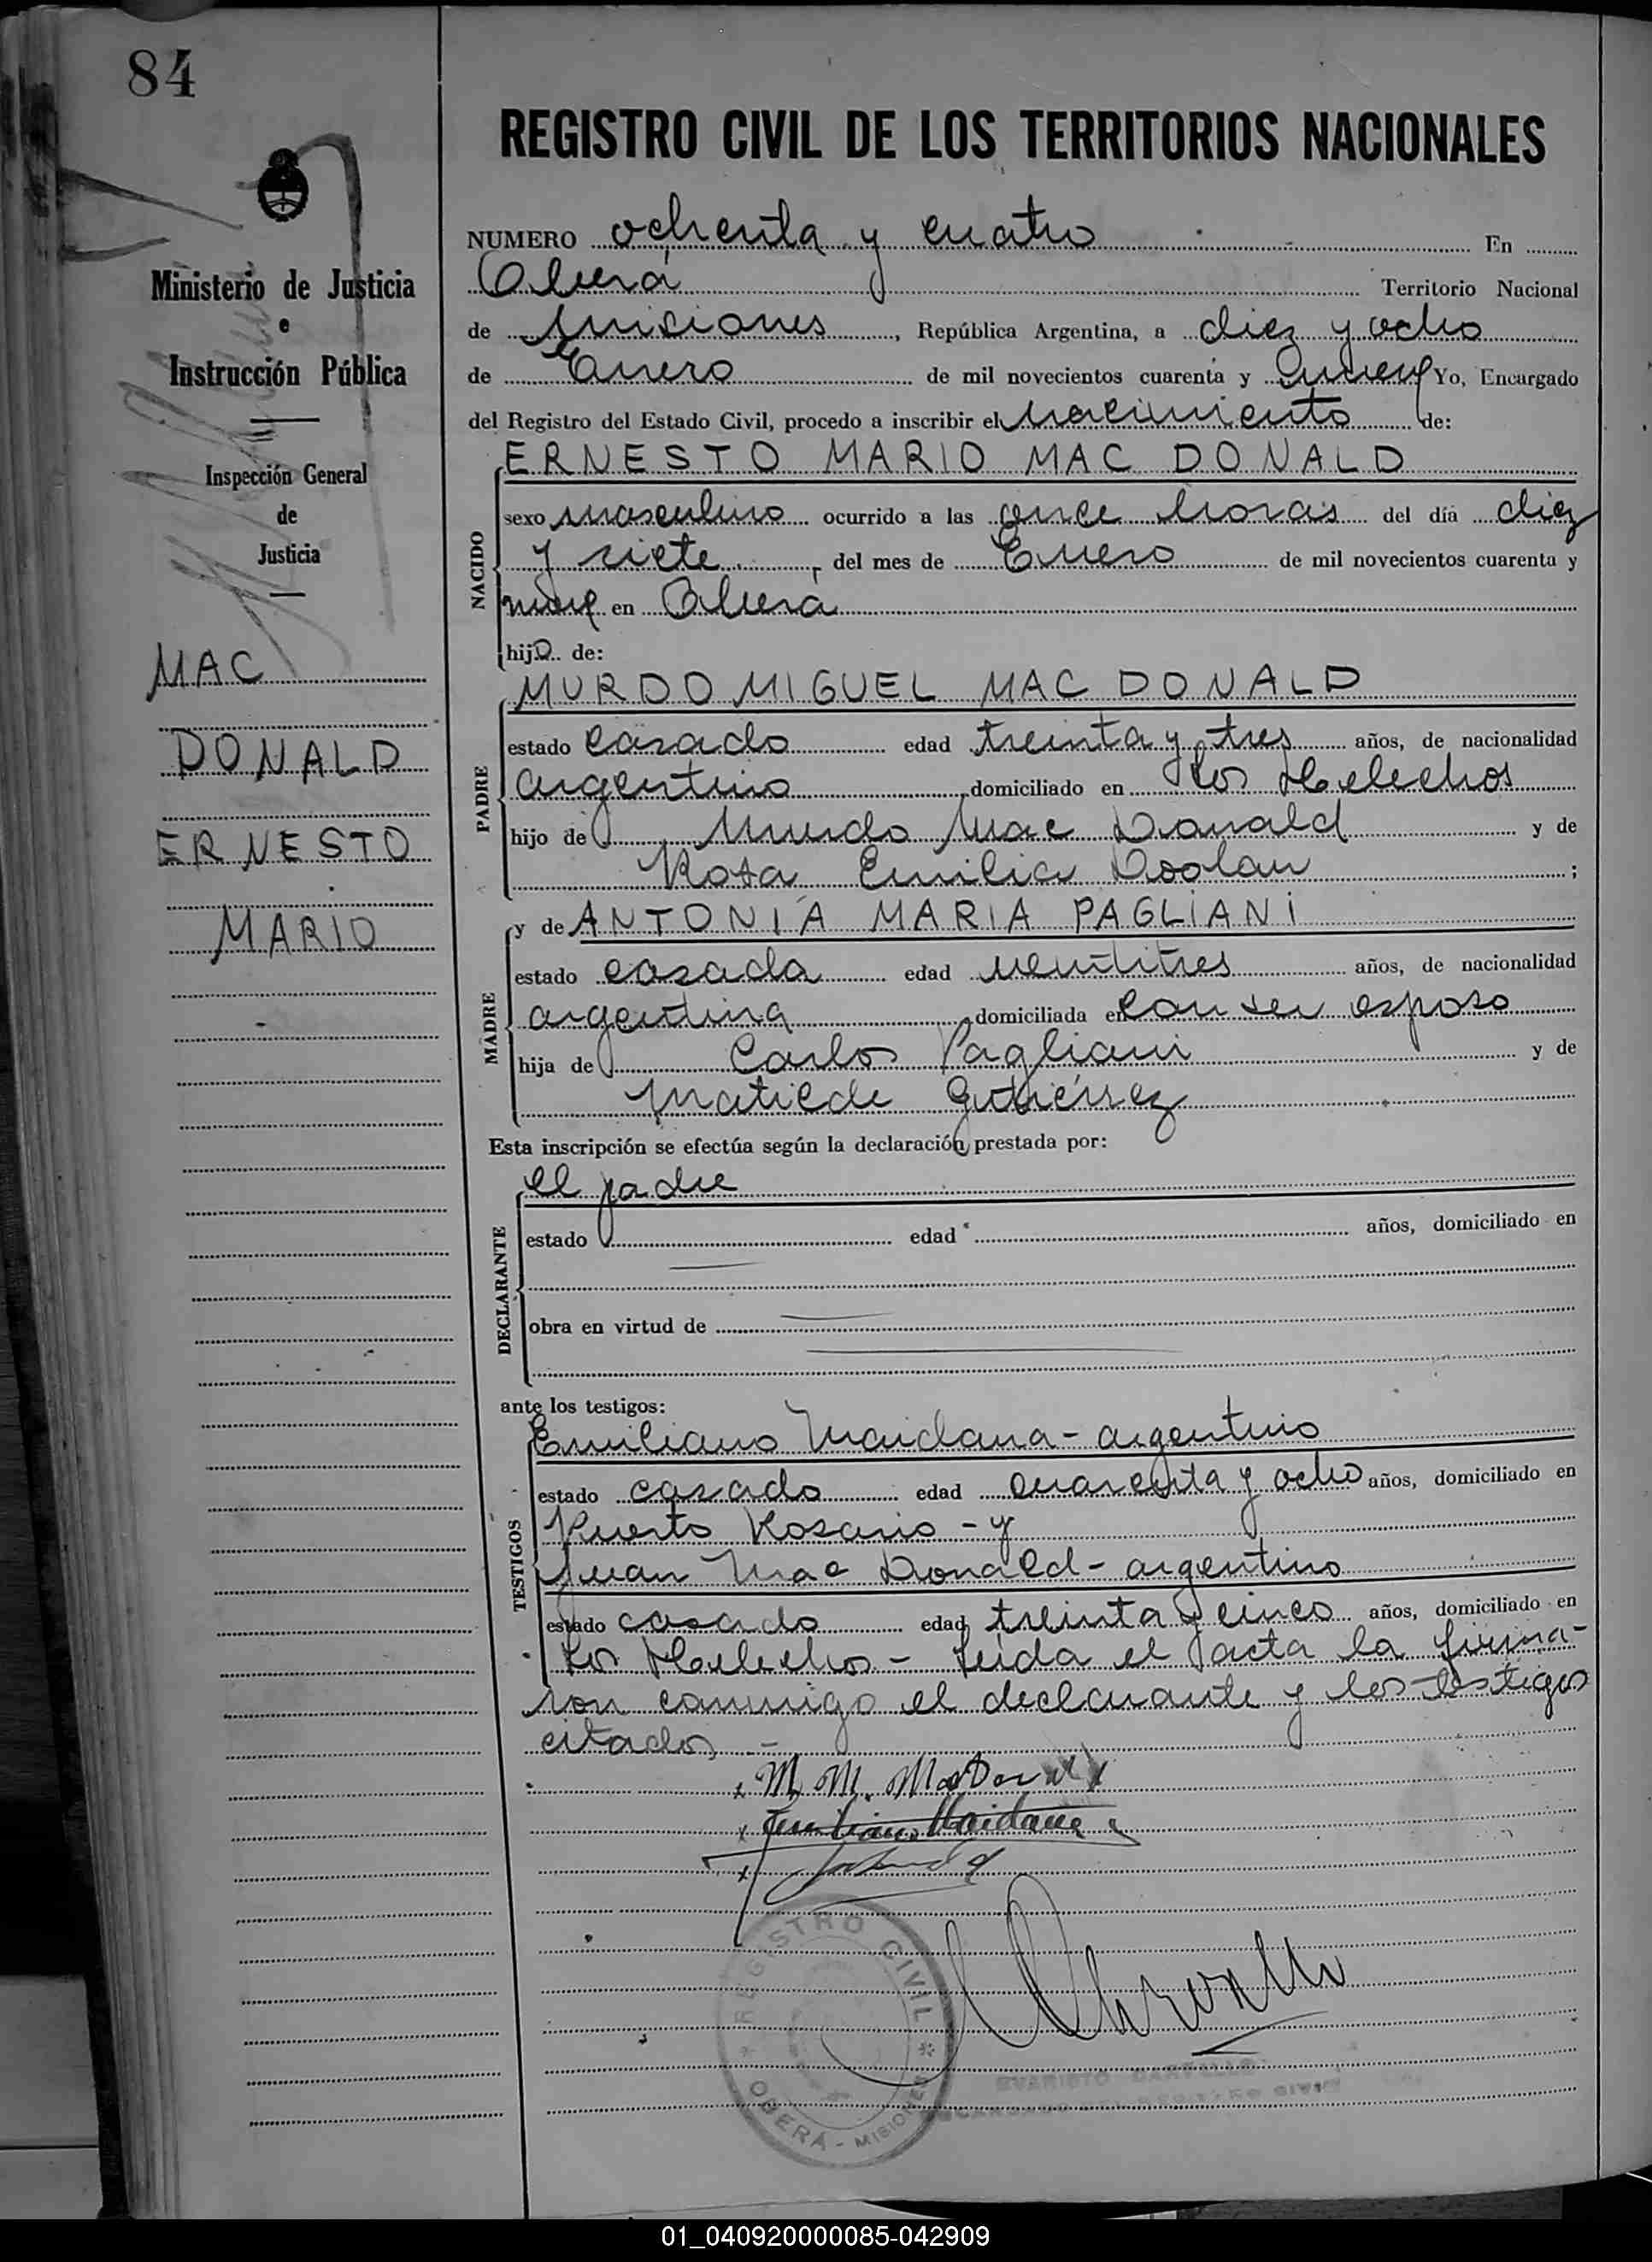 84
REGISTRO CIVIL DE LOS TERRITORIOS NACIONALES
Ministerio de Justicia
e
Instrucción Pública
Inspección General
de
Justicia
MAC
DONALD
ERNESTO
MARIO
NUMERO ochenta y cuatro En
Oberá Territorio Nacional
de Misiones, República Argentina, a diez y ocho
de Enero de mil novecientos cuarenta y nueve Yo, Encargado
del Registro del Estado Civil, procedo a inscribir el nacimiento de:
NACIDO
ERNESTO MARIO MAC DONALD
sexo masculino ocurrido a las once horas del día diez
y siete, del mes de Enero de mil novecientos cuarenta y
nueve en Oberá
hijo de:
PADRE
MURDO MIGUEL MAC DONALD
estado casado edad treinta y tres años, de nacionalidad
argentino domiciliado en Los Helechos
hijo de Murdo Mac Donald y de
Rosa Emilia Doolan ;
MADRE
y de ANTONIA MARIA PAGLIANI
estado casada edad veintitres años, de nacionalidad
argentina, domiciliada en con su esposo
hija de Carlos Pagliani y de
Matilde Gutiérrez
Esta inscripción se efectúa según la declaración prestada por:
DECLARANTE
el padre
estado edad años, domiciliado en
obra en virtud de
ante los testigos:
TESTIGOS
Emiliano Maidana - argentino
estado casado edad cuarenta y ocho años, domiciliado en
Puerto Rosario - y
Juan Mac Donald - argentino
estado casado edad treinta y cinco años, domiciliado en
Los Helechos - Leída el acta la firma-
ron conmigo el declarante y los testigos
citados -
M. M. MacDonald
Emiliano Maidana
REGISTRO CIVIL
OBERÁ - MISIONES
EVARISTO CARVALLO
ENCARGADO DEL REGISTRO CIVIL
01_040920000085-042909